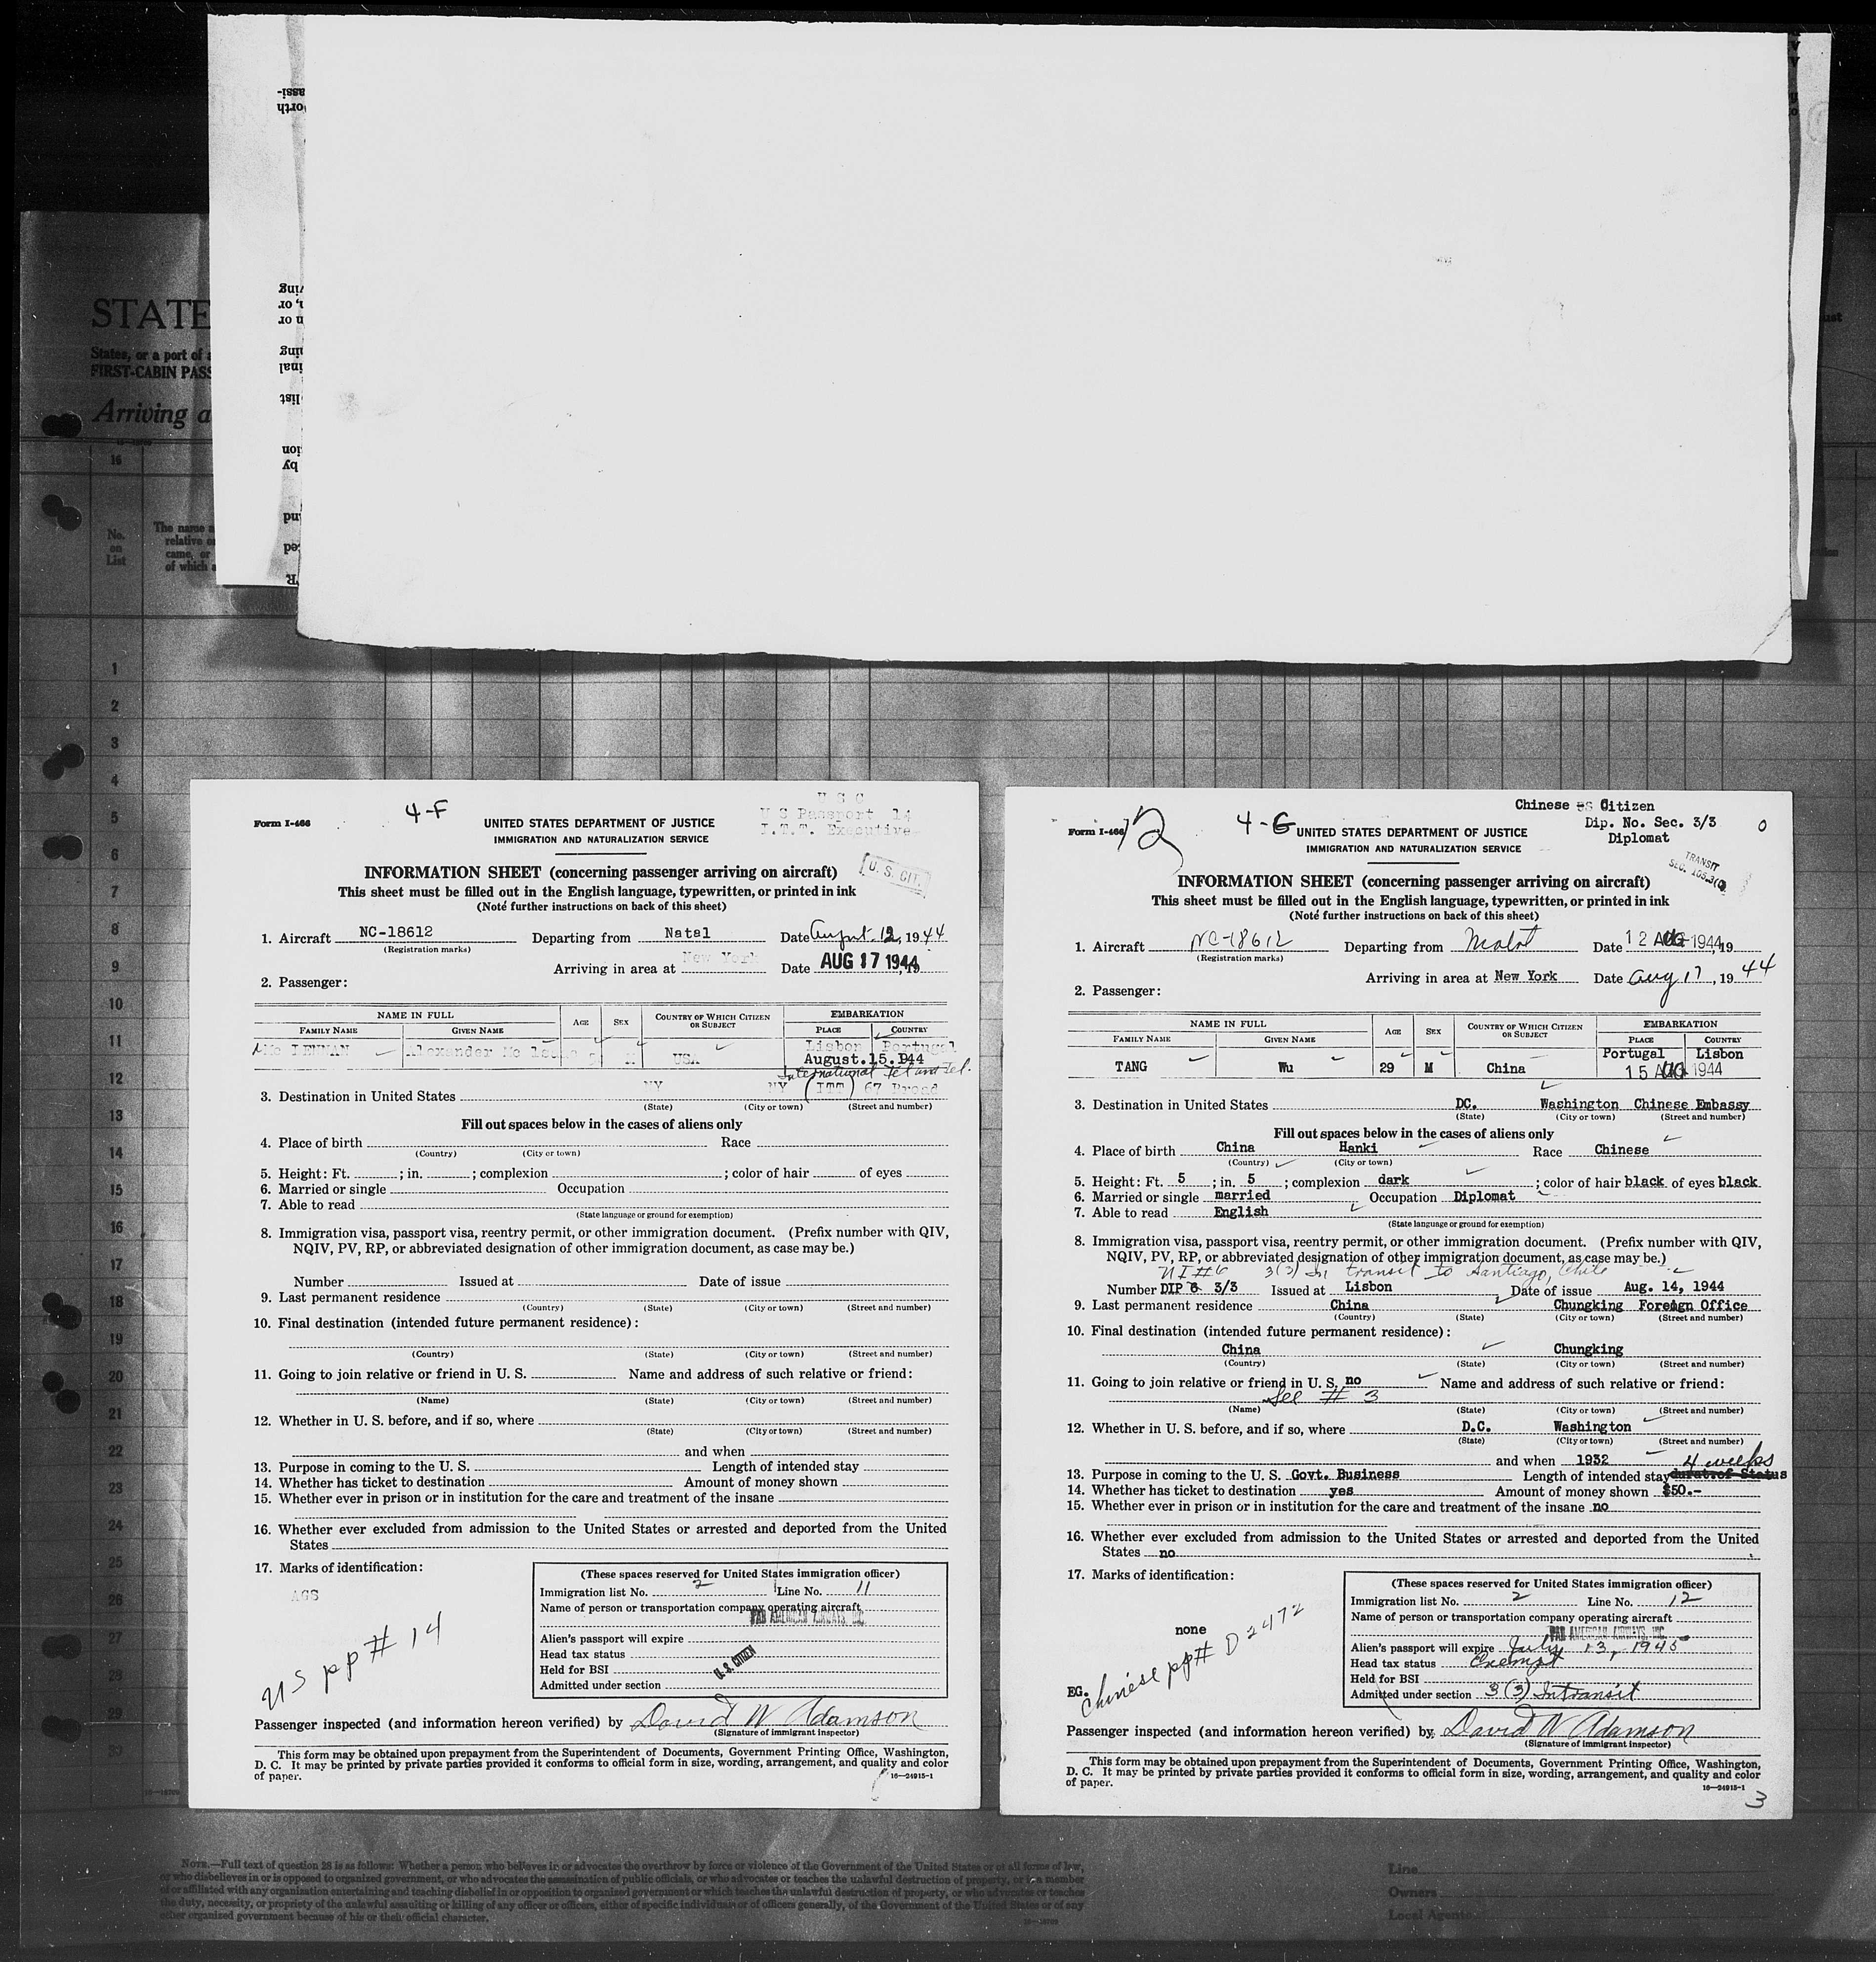 STATE
States, or a port of
FIRST-CABIN PASS
Arriving a
16
No.
on
List
The name
relative
came, or
of which
1
2
3
4
5
6
7
8
9
10
11
12
13
14
15
16
17
18
19
20
21
22
23
24
25
26
27
28
29
30
4-F
U S C
U S Passport 14
I.T.T. Executive
Form I-466
UNITED STATES DEPARTMENT OF JUSTICE
IMMIGRATION AND NATURALIZATION SERVICE
INFORMATION SHEET (concerning passenger arriving on aircraft)
U. S. CIT.
This sheet must be filled out in the English language, typewritten, or printed in ink
(Note further instructions on back of this sheet)
1. Aircraft NC-18612 Departing from Natal Date August 12, 1944
(Registration marks)
Arriving in area at New York Date AUG 17 1944
2. Passenger:
NAME IN FULL AGE SEX COUNTRY OF WHICH CITIZEN OR SUBJECT EMBARKATION
FAMILY NAME GIVEN NAME PLACE COUNTRY
Mc LENNAN Alexander M USA Lisbon Portugal
August.15.1944
International Tel and Tel.
3. Destination in United States NY NY (ITT) 67 Broad
(State) (City or town) (Street and number)
Fill out spaces below in the cases of aliens only
4. Place of birth Race
(Country) (City or town)
5. Height: Ft. ; in. ; complexion ; color of hair of eyes
6. Married or single Occupation
7. Able to read
(State language or ground for exemption)
8. Immigration visa, passport visa, reentry permit, or other immigration document. (Prefix number with QIV,
NQIV, PV, RP, or abbreviated designation of other immigration document, as case may be.)
Number Issued at Date of issue
9. Last permanent residence
(Country) (State) (City or town) (Street and number)
10. Final destination (intended future permanent residence):
(Country) (State) (City or town) (Street and number)
11. Going to join relative or friend in U. S. Name and address of such relative or friend:
(Name) (State) (City or town) (Street and number)
12. Whether in U. S. before, and if so, where
(State) (City or town) (Street and number)
and when
13. Purpose in coming to the U. S. Length of intended stay
14. Whether has ticket to destination Amount of money shown
15. Whether ever in prison or in institution for the care and treatment of the insane
16. Whether ever excluded from admission to the United States or arrested and deported from the United
States
17. Marks of identification:
AGS
US pp # 14
(These spaces reserved for United States immigration officer)
Immigration list No. 2 Line No. 11
Name of person or transportation company operating aircraft
PAN AMERICAN AIRWAYS, INC.
Alien's passport will expire
Head tax status
Held for BSI
U. S. CITIZEN
Admitted under section
Passenger inspected (and information hereon verified) by David W Adamson
(Signature of immigrant inspector)
This form may be obtained upon prepayment from the Superintendent of Documents, Government Printing Office, Washington,
D. C. It may be printed by private parties provided it conforms to official form in size, wording, arrangement, and quality and color
of paper.
16—24915-1
Chinese Citizen
Dip. No. Sec. 3/3
Diplomat
0
Form I-466
12
4-G
UNITED STATES DEPARTMENT OF JUSTICE
IMMIGRATION AND NATURALIZATION SERVICE
TRANSIT
SEC. 165.3(
INFORMATION SHEET (concerning passenger arriving on aircraft)
This sheet must be filled out in the English language, typewritten, or printed in ink
(Note further instructions on back of this sheet)
1. Aircraft NC-18612 Departing from Natal Date 12 AUG 1944, 19
(Registration marks)
Arriving in area at New York Date Aug 17, 1944
2. Passenger:
NAME IN FULL AGE SEX COUNTRY OF WHICH CITIZEN OR SUBJECT EMBARKATION
FAMILY NAME GIVEN NAME PLACE COUNTRY
TANG Wu 29 M China Portugal Lisbon
15 AUG 1944
3. Destination in United States DC. Washington Chinese Embassy
(State) (City or town) (Street and number)
Fill out spaces below in the cases of aliens only
4. Place of birth China Hanki Race Chinese
(Country) (City or town)
5. Height: Ft. 5 ; in. 5 ; complexion dark ; color of hair black of eyes black
6. Married or single married Occupation Diplomat
7. Able to read English
(State language or ground for exemption)
8. Immigration visa, passport visa, reentry permit, or other immigration document. (Prefix number with QIV,
NQIV, PV, RP, or abbreviated designation of other immigration document, as case may be.)
NI#6 3(3) In transit to Santiago, Chile
Number DIP 6 3/3 Issued at Lisbon Date of issue Aug. 14, 1944
9. Last permanent residence China Chungking Foreign Office
(Country) (State) (City or town) (Street and number)
10. Final destination (intended future permanent residence):
China Chungking
(Country) (State) (City or town) (Street and number)
11. Going to join relative or friend in U. S. no Name and address of such relative or friend:
See # 3
(Name) (State) (City or town) (Street and number)
12. Whether in U. S. before, and if so, where D.C. Washington
(State) (City or town) (Street and number)
and when 1932 4 weeks
13. Purpose in coming to the U. S. Govt. Business Length of intended stay durat.of Status
14. Whether has ticket to destination yes Amount of money shown $50.-
15. Whether ever in prison or in institution for the care and treatment of the insane no
16. Whether ever excluded from admission to the United States or arrested and deported from the United
States no
17. Marks of identification:
none
EG.
Chinese pp# D 2472
(These spaces reserved for United States immigration officer)
Immigration list No. 2 Line No. 12
Name of person or transportation company operating aircraft
PAN AMERICAN AIRWAYS, INC.
Alien's passport will expire July 13, 1945
Head tax status Exempt
Held for BSI
Admitted under section 3(3) Intransit
Passenger inspected (and information hereon verified) by David W Adamson
(Signature of immigrant inspector)
This form may be obtained upon prepayment from the Superintendent of Documents, Government Printing Office, Washington,
D. C. It may be printed by private parties provided it conforms to official form in size, wording, arrangement, and quality and color
of paper.
16—24915-1
3
NOTE.—Full text of question 28 is as follows: Whether a person who believes in or advocates the overthrow by force or violence of the Government of the United States or of all forms of law,
or who disbelieves in or is opposed to organized government, or who advocates the assassination of public officials, or who advocates or teaches the unlawful destruction of property, or is a member
of or affiliated with any organization entertaining and teaching disbelief in or opposition to organized government or which teaches the unlawful destruction of property, or who advocates or teaches
the duty, necessity, or propriety of the unlawful assaulting or killing of any officer or officers, either of specific individuals or of officers generally, of the Government of the United States or of any
other organized government because of his or their official character.
Line
Owners
Local Agents